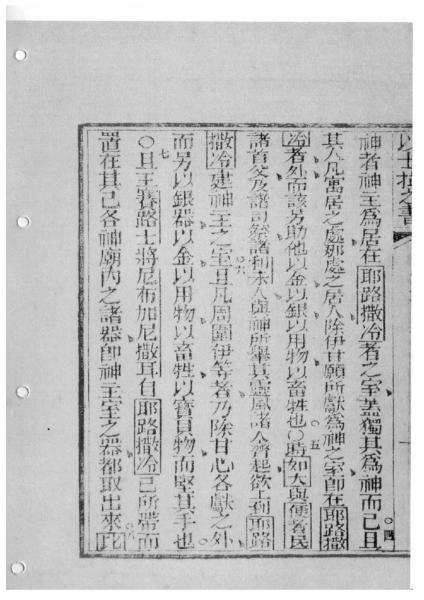 以士拉之書
神者神主為居在耶路撒冷者之室蓋獨其為神而已且〇四
其人凡寓居之處那處之居人除伊甘願所獻為神之室即在耶路撒
冷者外而該另助他以金以銀以用物以畜牲也〇五時如大與便者民
諸首父及諸司祭諸利未人與神所舉其靈風諸人齊起欲上到耶路
撒冷建神主之室〇六且凡周圍伊等者乃除甘心各獻之外
而另以銀器以金以用物以畜牲以寶貝物而堅其手也
〇七且王賽路士將尼布加尼撒耳自耶路撒冷已所帶而
置在其己各神廟內之諸器即神主室之器都取出來〇八此